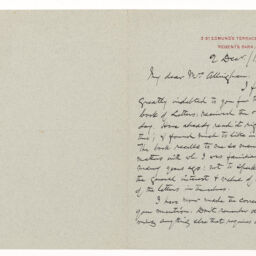 3 ST EDMUND'S TERRACE
REGENT'S PARK
9 Dec. /1
My dear Mrs. Allingham,
I f
Greatly indebted to you for th
book of Letters received the o
day. Have already read it rig
this, & found much to like in
The book recalls to me so man
matters with wh. I was familiar
many years ago: not to speak
the general interest & value of
of the letters in themselves.
I have now made the correc
you mention. Don't remember
noting anything else that requires